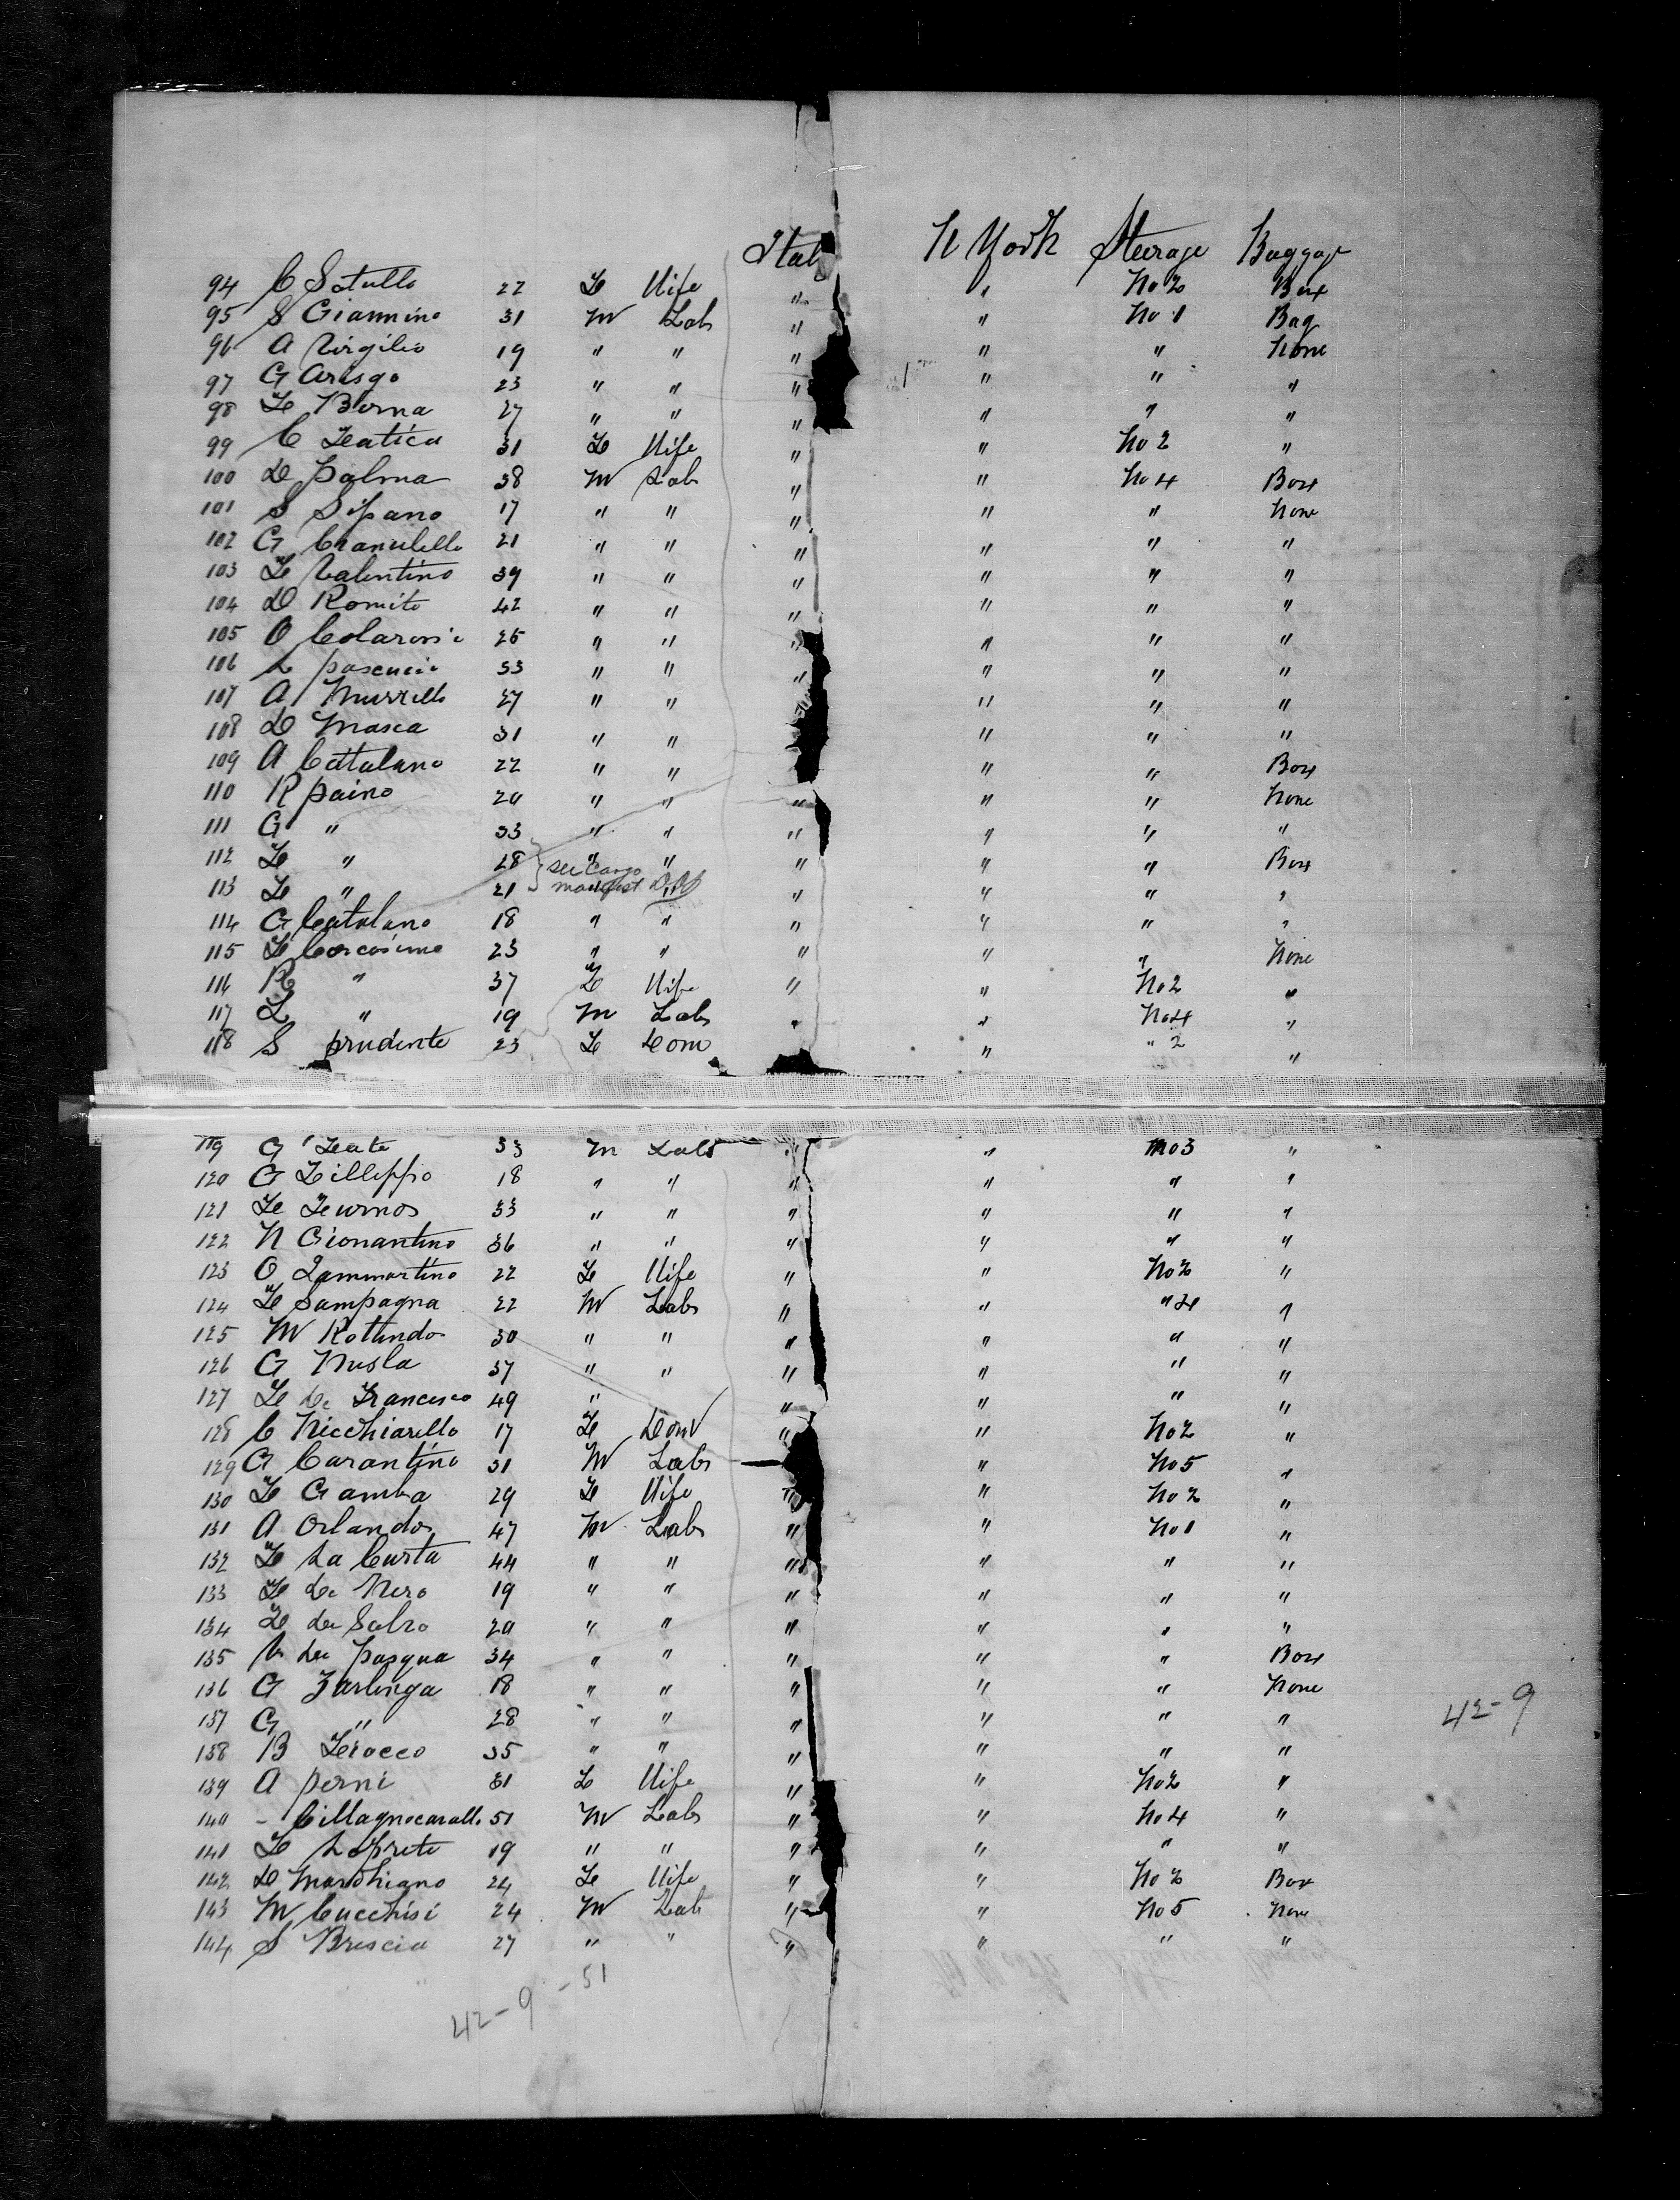 Ital N York Steerage Baggage
94 C Statullo 22 Fe Wife " " No 2 Box
95 S Giannino 31 M Lab " " No 1 Bag
96 A Virgilio 19 " " " " " None
97 G Arisgo 23 " " " " " "
98 Fe Berna 27 " " " " " "
99 C Featica 31 Fe Wife " " No 2 "
100 D Palma 38 M Lab " " No 4 Box
101 S Sipano 17 " " " " " None
102 G 21 " " " " " "
103 Fe Valentino 39 " " " " " "
104 D Romito 42 " " " " " "
105 O Colarusi 26 " " " " " "
106 L pascucio 33 " " " " " "
107 A Murrello 27 " " " " " "
108 D Masca 31 " " " " " "
109 A Catalano 22 " " " " " Box
110 R paino 20 " " " " " None
111 G " 33 " " " " " "
112 Fe " 28 " " " " " Box
see Cargo
113 Fe " 21 " " " " " "
manifest
114 G Catalano 18 " " " " " "
115 Fe Corcosimo 23 " " " " " None
116 R " 37 Fe Wife " " No 2 "
117 L " 19 M Lab " " No 4 "
118 S prudente 23 Fe Dom " " 2 "
119 G Feate 33 M Lab " " No 3 "
120 G Filleppo 18 " " " " " "
121 Fe Feurnos 33 " " " " " "
122 N Gionantino 36 " " " " " "
123 O Lammartino 22 Fe Wife " " No 2 "
124 Fe Sampagna 22 M Lab " " " 4 "
125 M Rotundo 30 " " " " " "
126 G Nusla 37 " " " " " "
127 Fe De Francesco 49 " " " " "
128 C Nicchiarello 17 Fe Dom " " No 2 "
129 G Carantino 31 M Lab " No 5 "
130 Fe Gamba 29 Fe Wife " " No 2 "
131 A Orlando 47 M Lab " " No 1 "
132 Fe La Curta 44 " " " " " "
133 Fe De Nero 19 " " " " " "
134 Fe de Salvo 20 " " " " " "
135 V de Pasqua 34 " " " " " Box
136 G Zarlinga 18 " " " " " None
137 G " 28 " " " " " "
42-9
138 B Ferocco 35 " " " " " "
139 A perni 31 Fe Wife " " No 2 "
140 - C Magnocavallo 51 M Lab " " No 4 "
141 Fe Lopreto 19 " " " " " "
142 D Marchiano 24 Fe Wife " " No 2 Box
143 M Cucchisi 24 M Lab " " No 5 None
144 S Brescia 27 " " " " " "
42-9-51